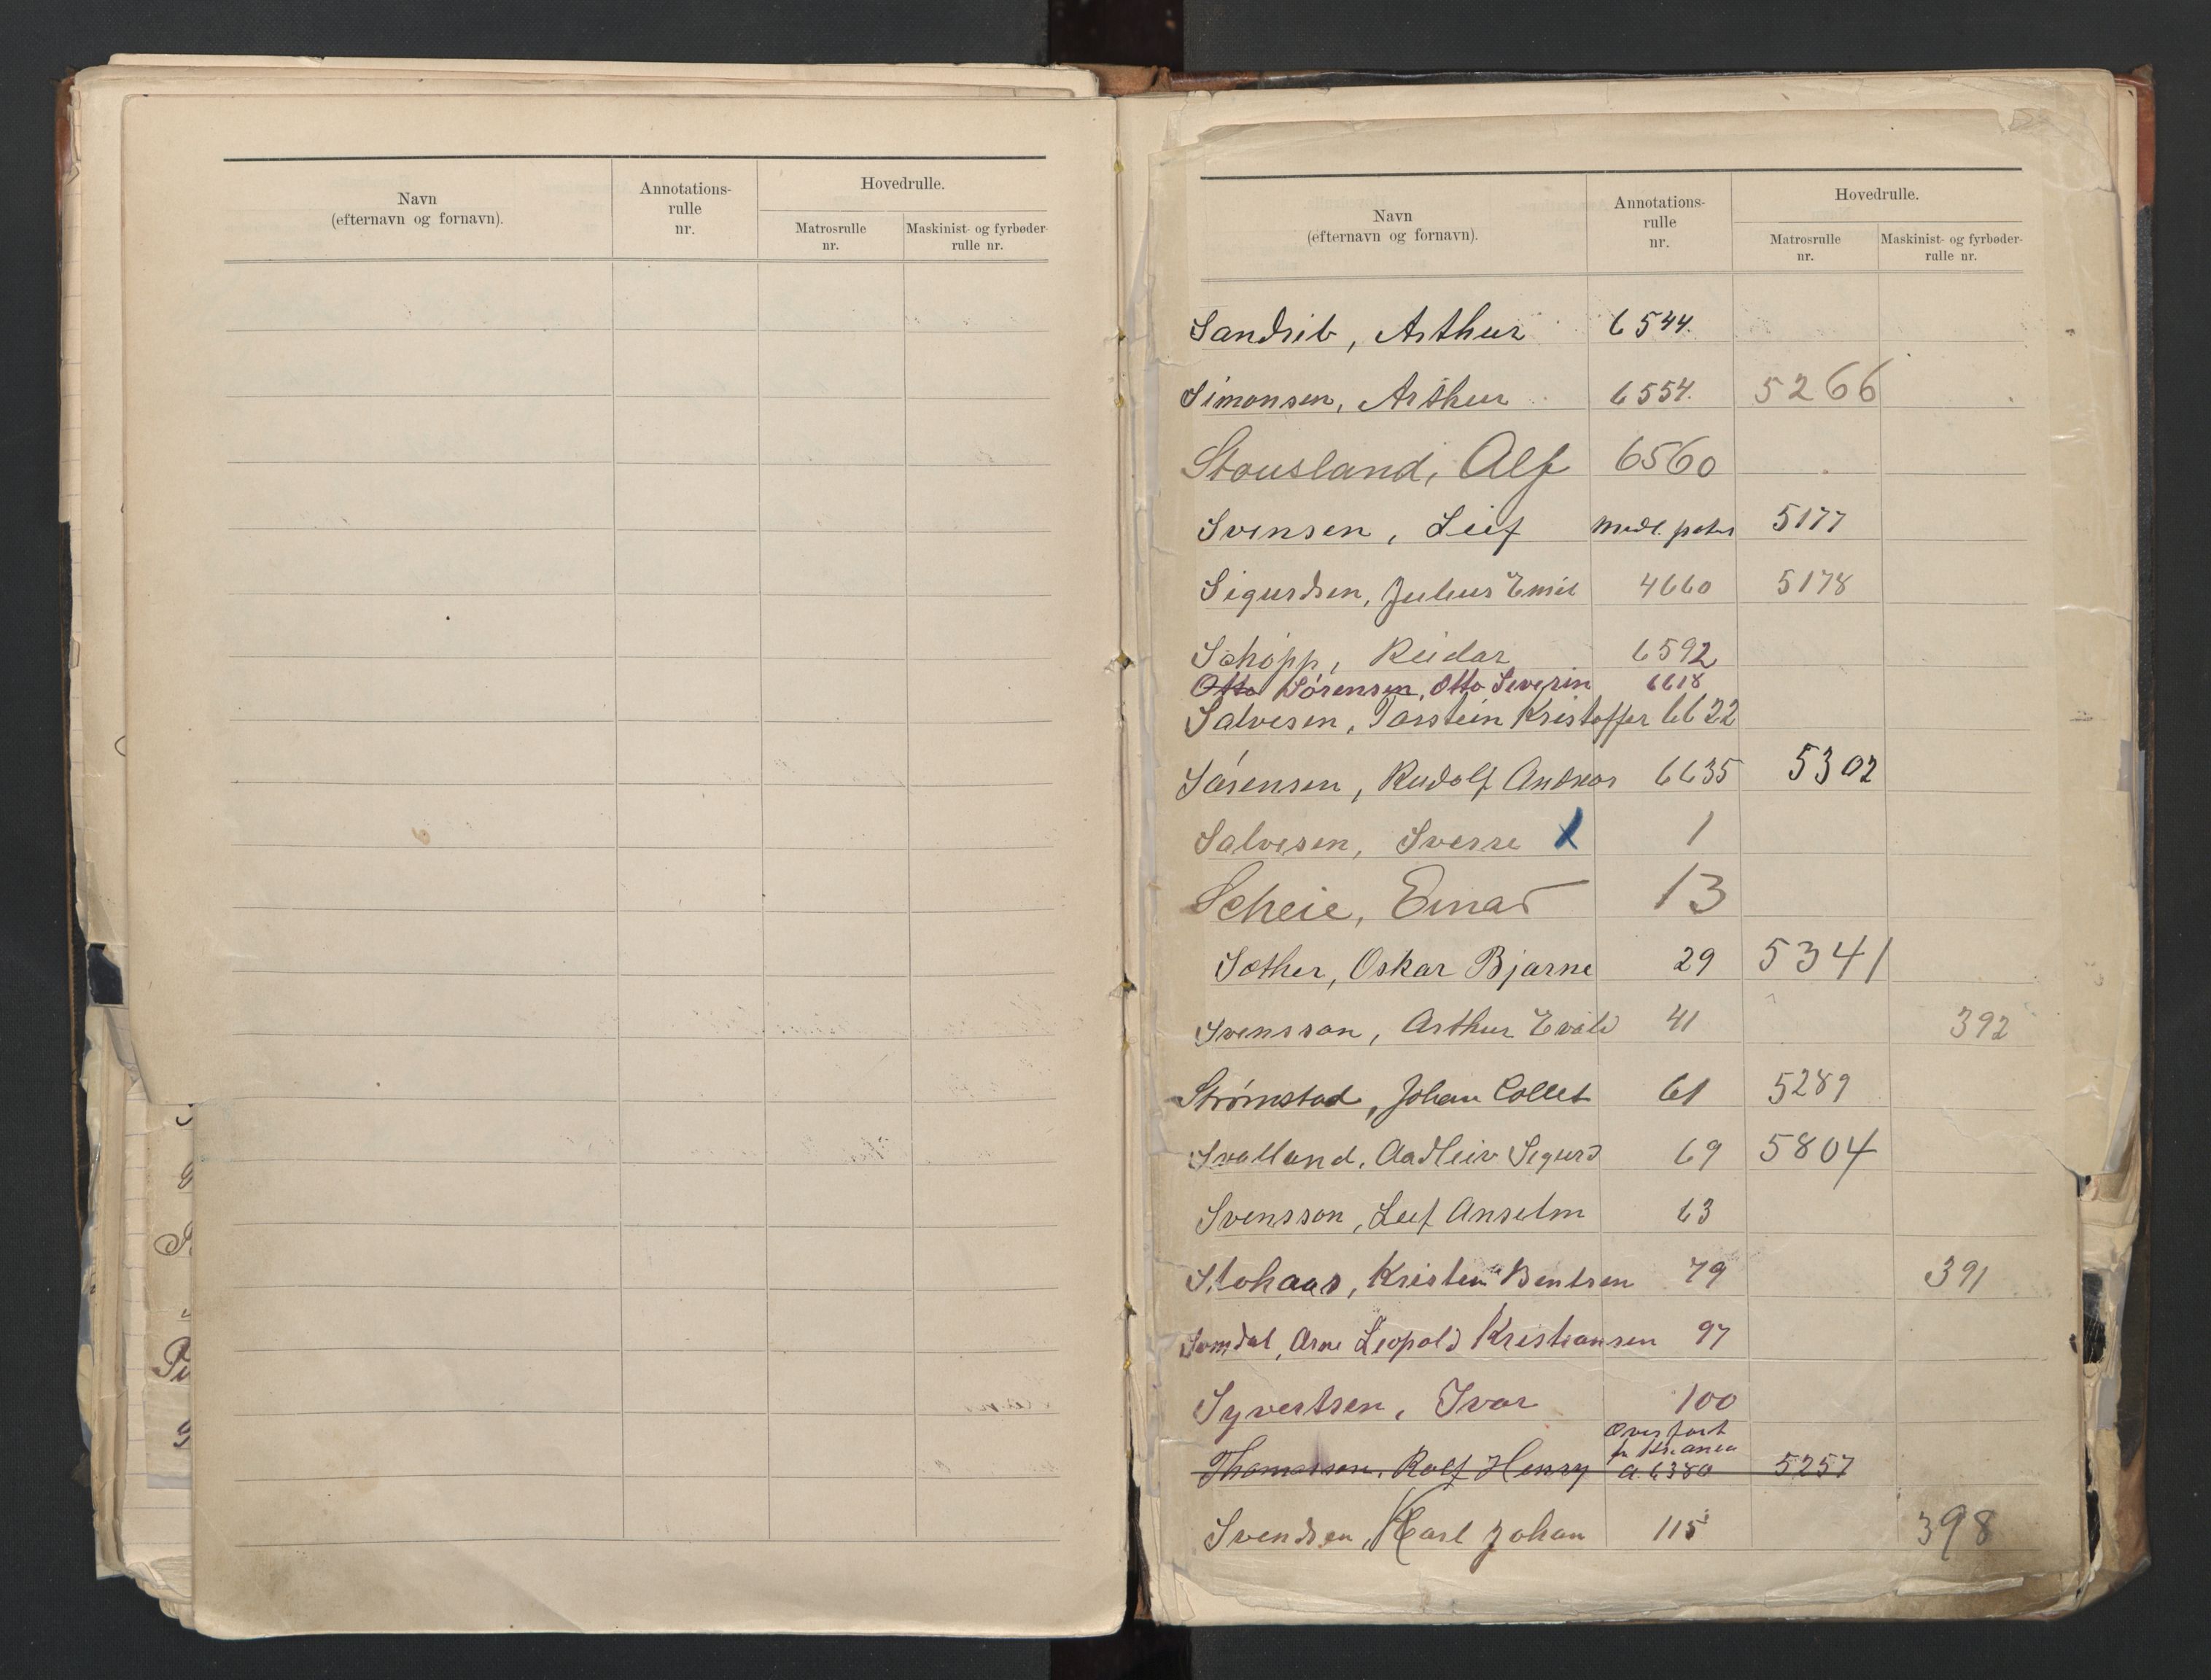 Navn
(efternavn og fornavn).
Annotations-
rulle
nr.
Hovedrulle.
Matrosrulle
nr.
Maskinist- og fyrbøder-
rulle nr.
Navn
(efternavn og fornavn).
Annotations-
rulle
nr.
Hovedrulle.
Matrosrulle
nr.
Maskinist- og fyrbøder-
rulle nr.
Sandsib, Arthur 6544.
Simonsen, Arthur 6554. 5266
Stousland, Alf 6560
Svensen, Leif Medl. 5177
Sigurdsen, Julius Emil 4660 5178
Schøpp, Reidar 6592
Otto Sørensen, Otto Severin 6618
Salvesen, Torstein Kristoffer 6622
Sørensen, Rudolf Andreas 6635 5302
Salvesen, Sverre X 1
Scheie, Einar 13
Sæther, Oskar Bjarne 29 5341
Svensson, Arthur Evald 41 392
Strømstad, Johan Collet 61 5289
Svalland, Aadleiv Sigurd 69 5804
Svensson, Leif Anselm 63
Stohaas, Kristen Bentsen 79 391
Somdal, Arne Leopold Kristiansen 97
Syvertsen, Ivar 100
Overført
fr Kr.ania
Thomassen, Rolf Henry a. 6380 5257
Svendsen, Karl Johan 115 398